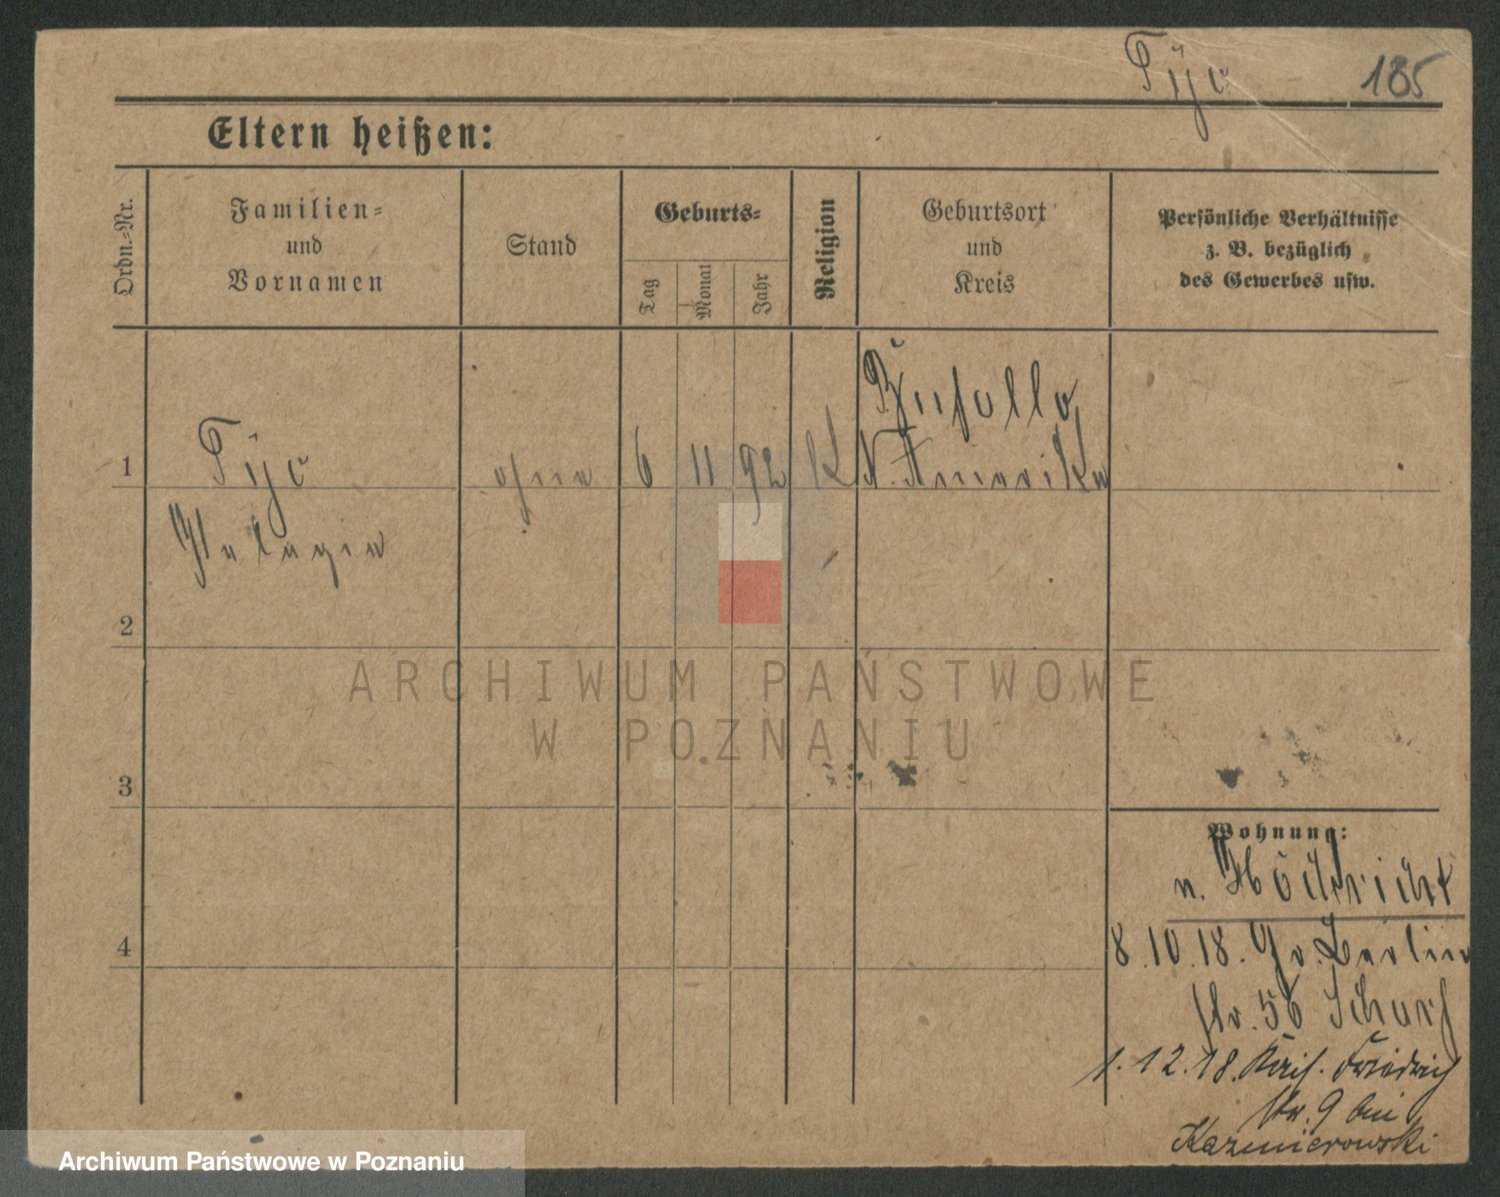 Tÿc 185
Eltern heißen:
Ordn.-Nr.
Familien-
und
Vornamen
Stand
Geburts-
Tag
Monat
Jahr
Religion
Geburtsort
und
Kreis
Persönliche Verhältnisse
z. B. bezüglich
des Gewerbes usw.
Buffallo
1 Tÿc ohne 6 11 92 K N. Amerika
Pelagia
2
ARCHIWUM PAŃSTWOWE
W POZNANIU
3
Wohnung:
n. Höchricht
4
8.10.18. Gr. Berlin
str. 56 Scharf
1.12.18. Kais. Friedrich
str. 9 bei
Kazmierowski
Archiwum Państwowe w Poznaniu